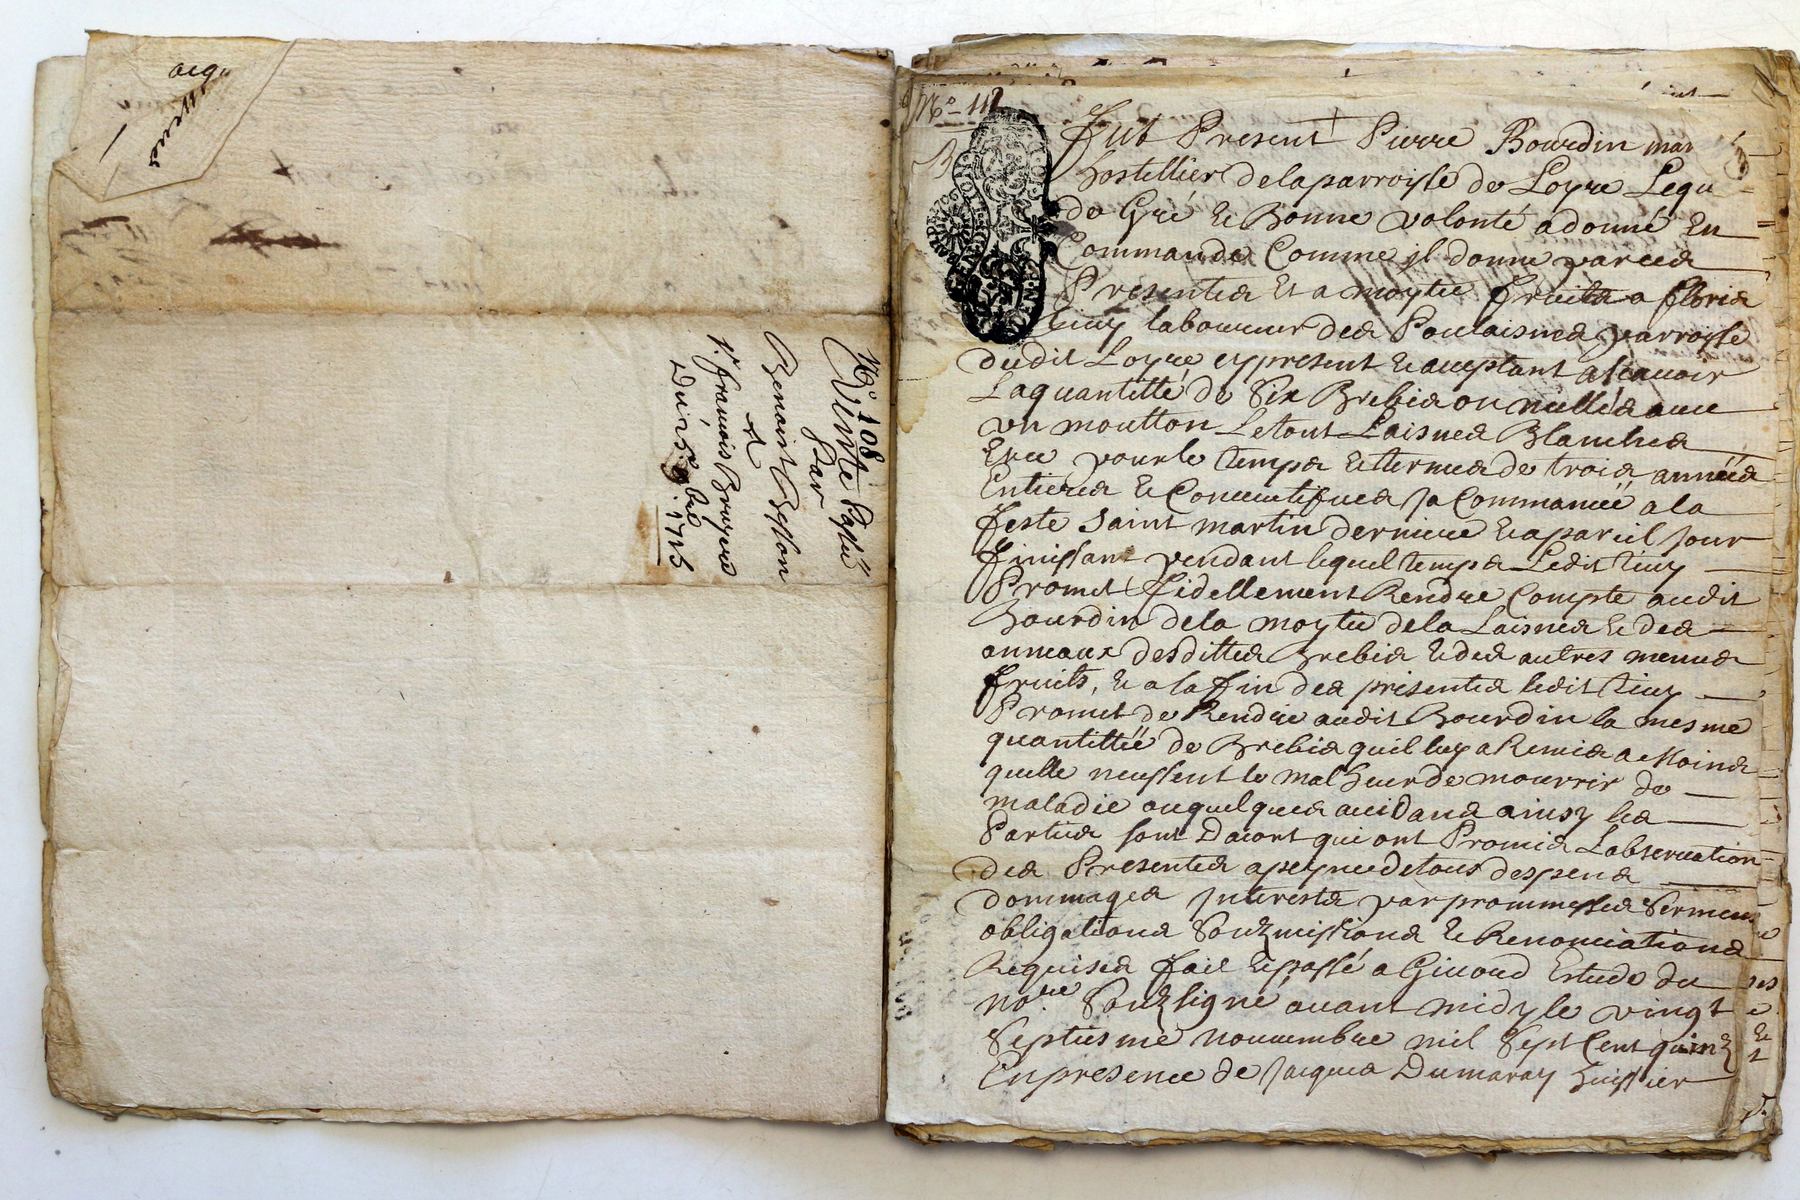 acqu
No. 108
Vente
Par
Benoist Besson
A
Sr. françois Brugere
Du 15e 9bre 1715
No. 112
GENE
Fut Present Pierre Bourdin mar
hostellier de la parroisse de Loyre Lequ
de Gré et Bonne volonté a donné En
Commande Comme jl donne par ces
Presentes Et a moytié fruits a
laboureur des parroisse
dudit Loyre cy present et acceptant ascavoir
La quantitté de Six Brebis ou avec
vn moutton Le tout Laisnes Blanches
Et ce pour le temps et termes de trois années
Entieres et Consecutifves ja Commancé a la
feste saint martin derniere et a pareil jour
finissant pendant lequel temps Ledit
Promet fidellement Rendre Compte audit
Bourdin de la moytié de la Laisnes et des
anneaux desdittes Brebis et des autres menus
fruits, et a la fin des presentes ledit
Promet de Rendre audit Bourdin la mesme
quantittée de Brebis quil luy a Remis a Moins
quelle neussent le mal heur de mourrir de
maladie ou quelques accidans ainsy les
Parties sont Dacort qui ont Promis Labservation
des Presentes a peyne de tous despens
dommages Jnterests par prommesses Sermens
obligations Soubzmissions et Renonciations
Requises fait et passé a Givord Estude du
nore. Soubzsigné avant midy le vingt
Septiesme novembre mil Sept Cent quinz
En presence de Jacques Dumaray huissier